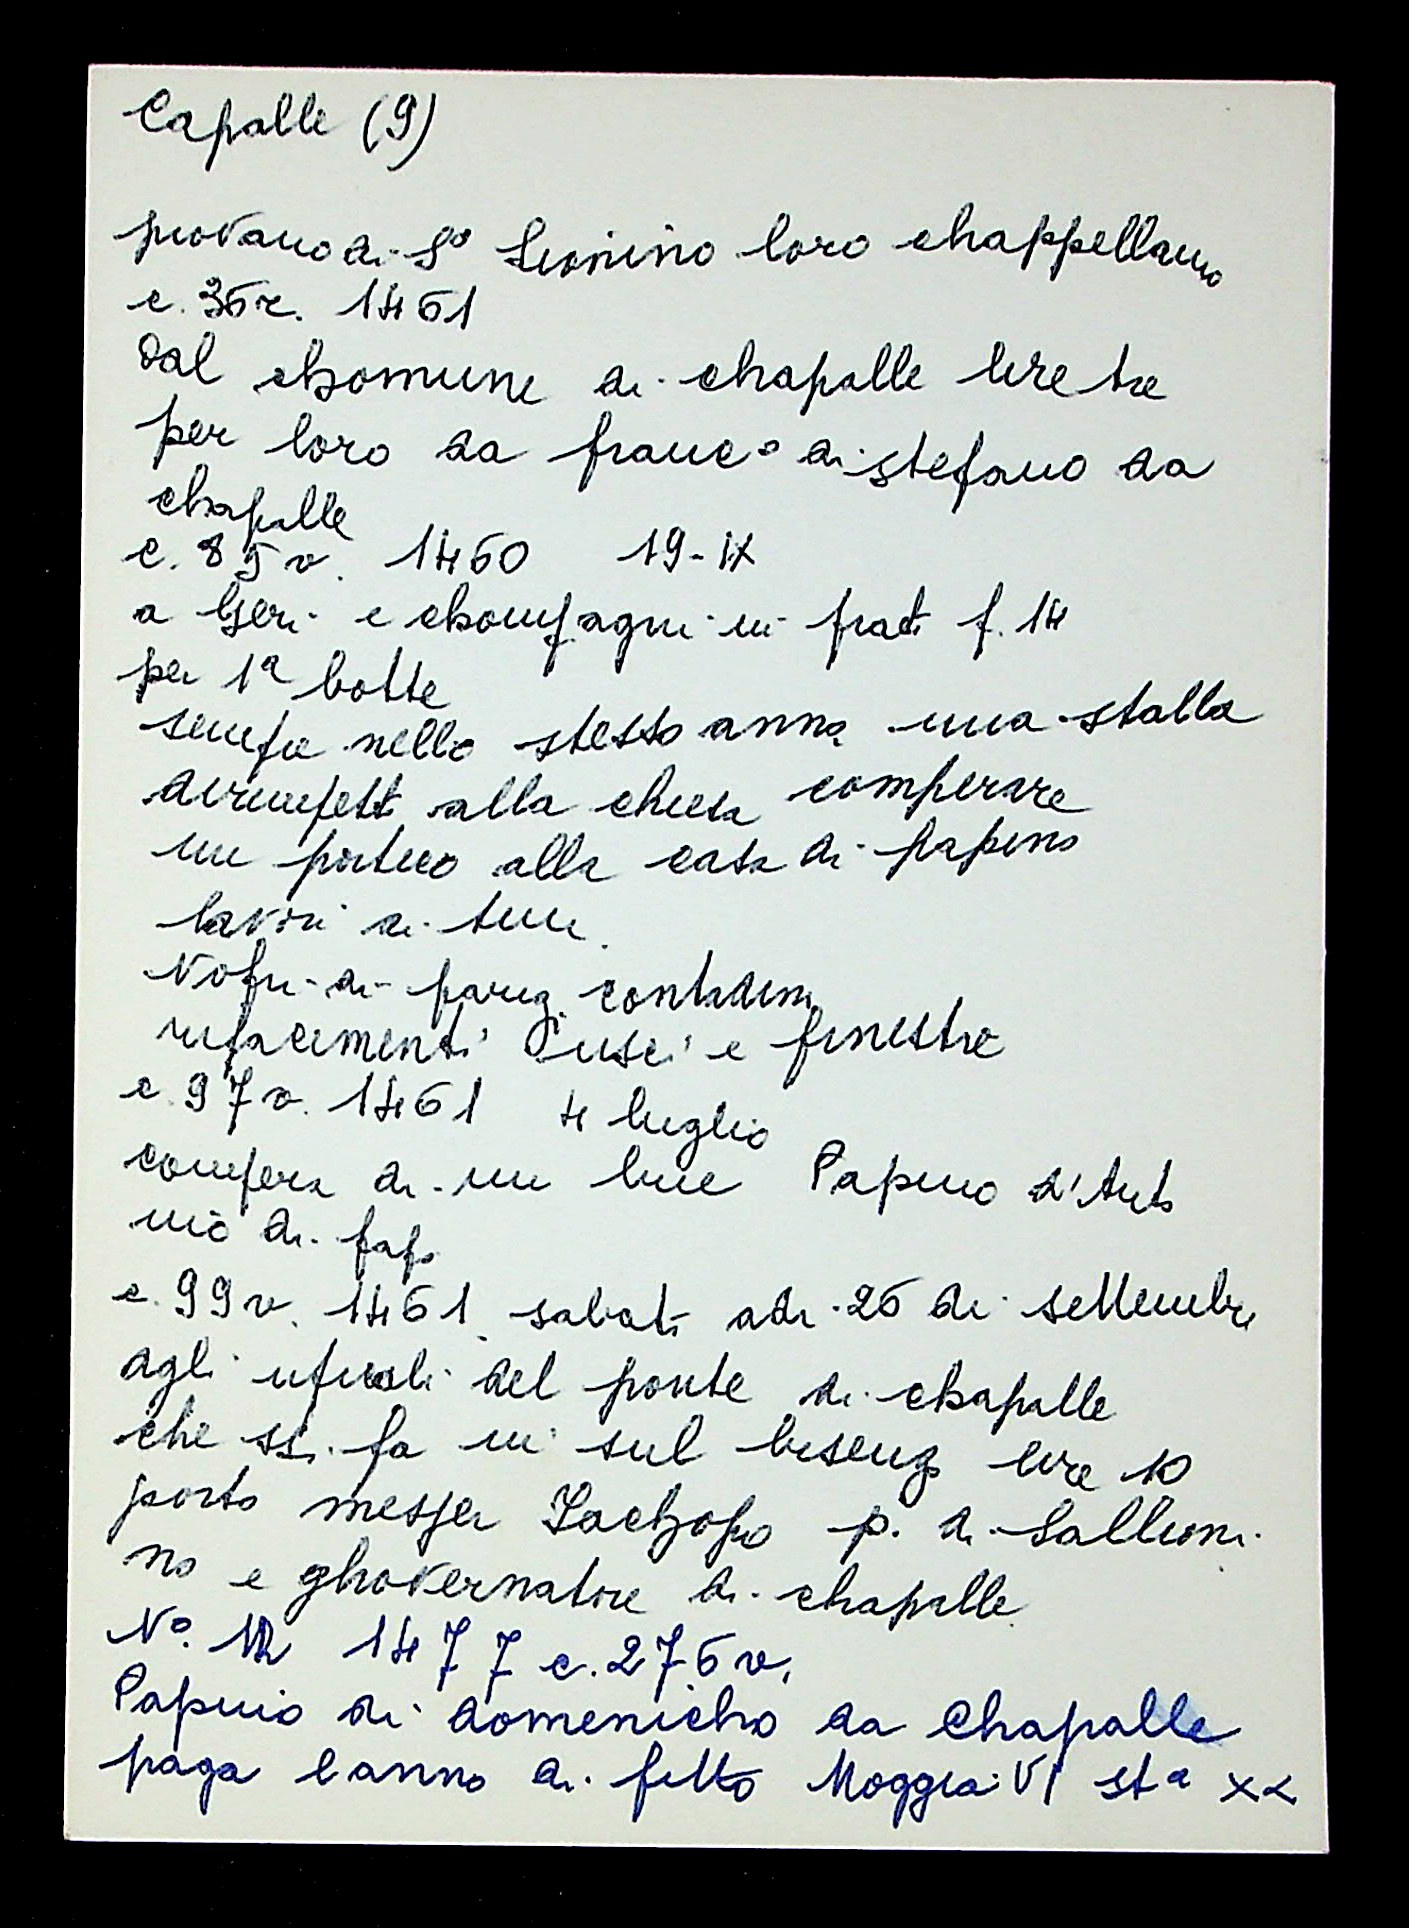 Capalle (9)
piovano di So Leonino loro chappellano
c. 36r. 1461
Dal chomune di chapalle lire tre
per loro da franco di stefano da
chapalle
c. 85v. 1460 19-IX
a Geri e chompagni in prato f. 14
per 1a botte
sempre nello stesso anno una stalla
dirimpetto alla chiesa comperare
un portico alla casa di papino
lavori di
Nofri di parigi contadini
rifacimenti usci e finestre
c. 97v. 1461 4 luglio
compera di un bue Papino d'Anto
nio di papi
c. 99v. 1461 sabato adi 26 di settembre
agli ufiziali del ponte di chapalle
che si fa in sul bisenzo lire 10
porto messer Iachopo p. di Salleoni
no e ghovernatore di chapalle
No. 12 1477 c. 276v.
Papino di domenicho da Chapalle
paga l anno di fitto Moggia VI sta XX